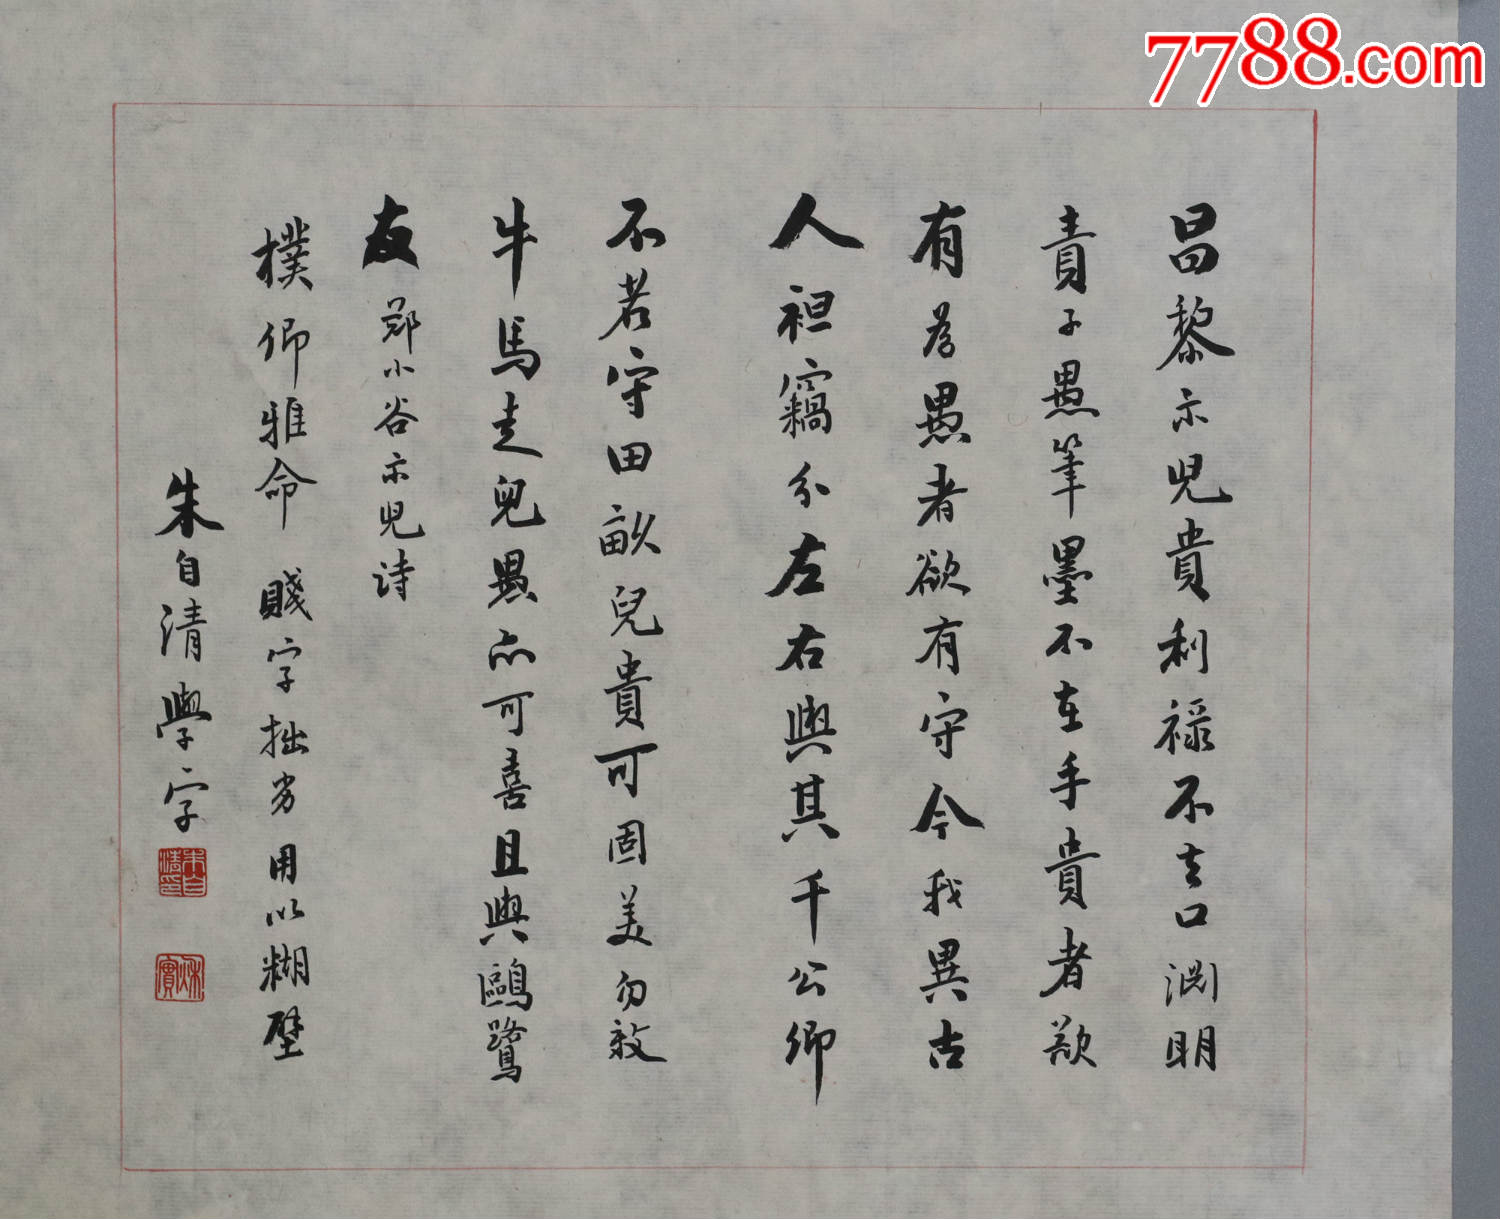 7788.com
昌黎示児貴利禄不去口渊明
責子愚筆墨不在手貴者欲
有為愚者欲有守今我異古
人袒竊分左右與其千公卿
不若守田畝兒貴可固美勿殺
牛馬走兒愚亦可喜且與鷗鷺
友 郑小谷示児诗
樸卿雅命 賤字拙劣用以糊壁
朱自清學字
朱自
清印